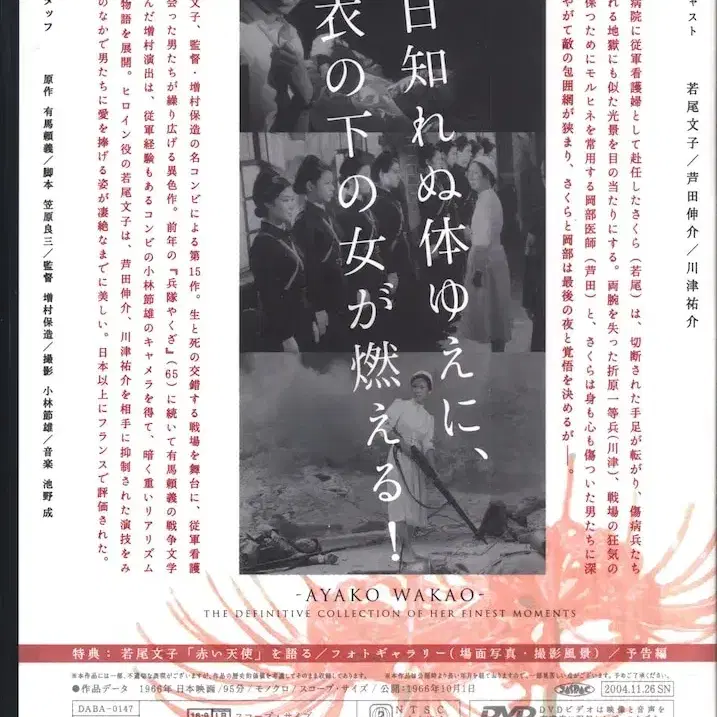 ャスト
若尾文子／芦田伸介／川津祐介
病院に従軍看護婦として赴任したさくら（若尾）は、切断された手足が転がり、傷病兵たち
れる地獄にも似た光景を目の当たりにする。両腕を失った折原一等兵（川津）、戦場の狂気の
保つためにモルヒネを常用する岡部医師（芦田）と、さくらは身も心も傷ついた男たちに深
やがて敵の包囲網が狭まり、さくらと岡部は最後の夜と覚悟を決めるが──。
日知れぬ体ゆえに、
衣の下の女が燃える！
文子、監督・増村保造の名コンビによる第15作。生と死の交錯する戦場を舞台に、従軍看護
会った男たちが繰り広げる異色作。前年の『兵隊やくざ』（65）に続いて有馬頼義の戦争文学
んだ増村演出は、従軍経験もあるコンビの小林節雄のキャメラを得て、暗く重いリアリズム
物語を展開。ヒロイン役の若尾文子は、芦田伸介、川津祐介を相手に抑制された演技をみ
のなかで男たちに愛を捧げる姿が凄絶なまでに美しい。日本以上にフランスで評価された。
タッフ
原作 有馬頼義／脚本 笠原良三／監督 増村保造／撮影 小林節雄／音楽 池野 成
-AYAKO WAKAO-
THE DEFINITIVE COLLECTION OF HER FINEST MOMENTS
特典：若尾文子「赤い天使」を語る／フォトギャラリー（場面写真・撮影風景）／予告編
※本作品には一部、不適切な表現がございますが、作品の歴史的価値を考慮してそのまま収録してあります。
●作品データ 1966年 日本映画／95分／モノクロ／スコープ・サイズ／公開：1966年10月1日
2004.11.26 SN
DABA-0147
16:9 LB
スコープ・サイズ
2
NTSC
DVD
DVDビデオは映像と音声を